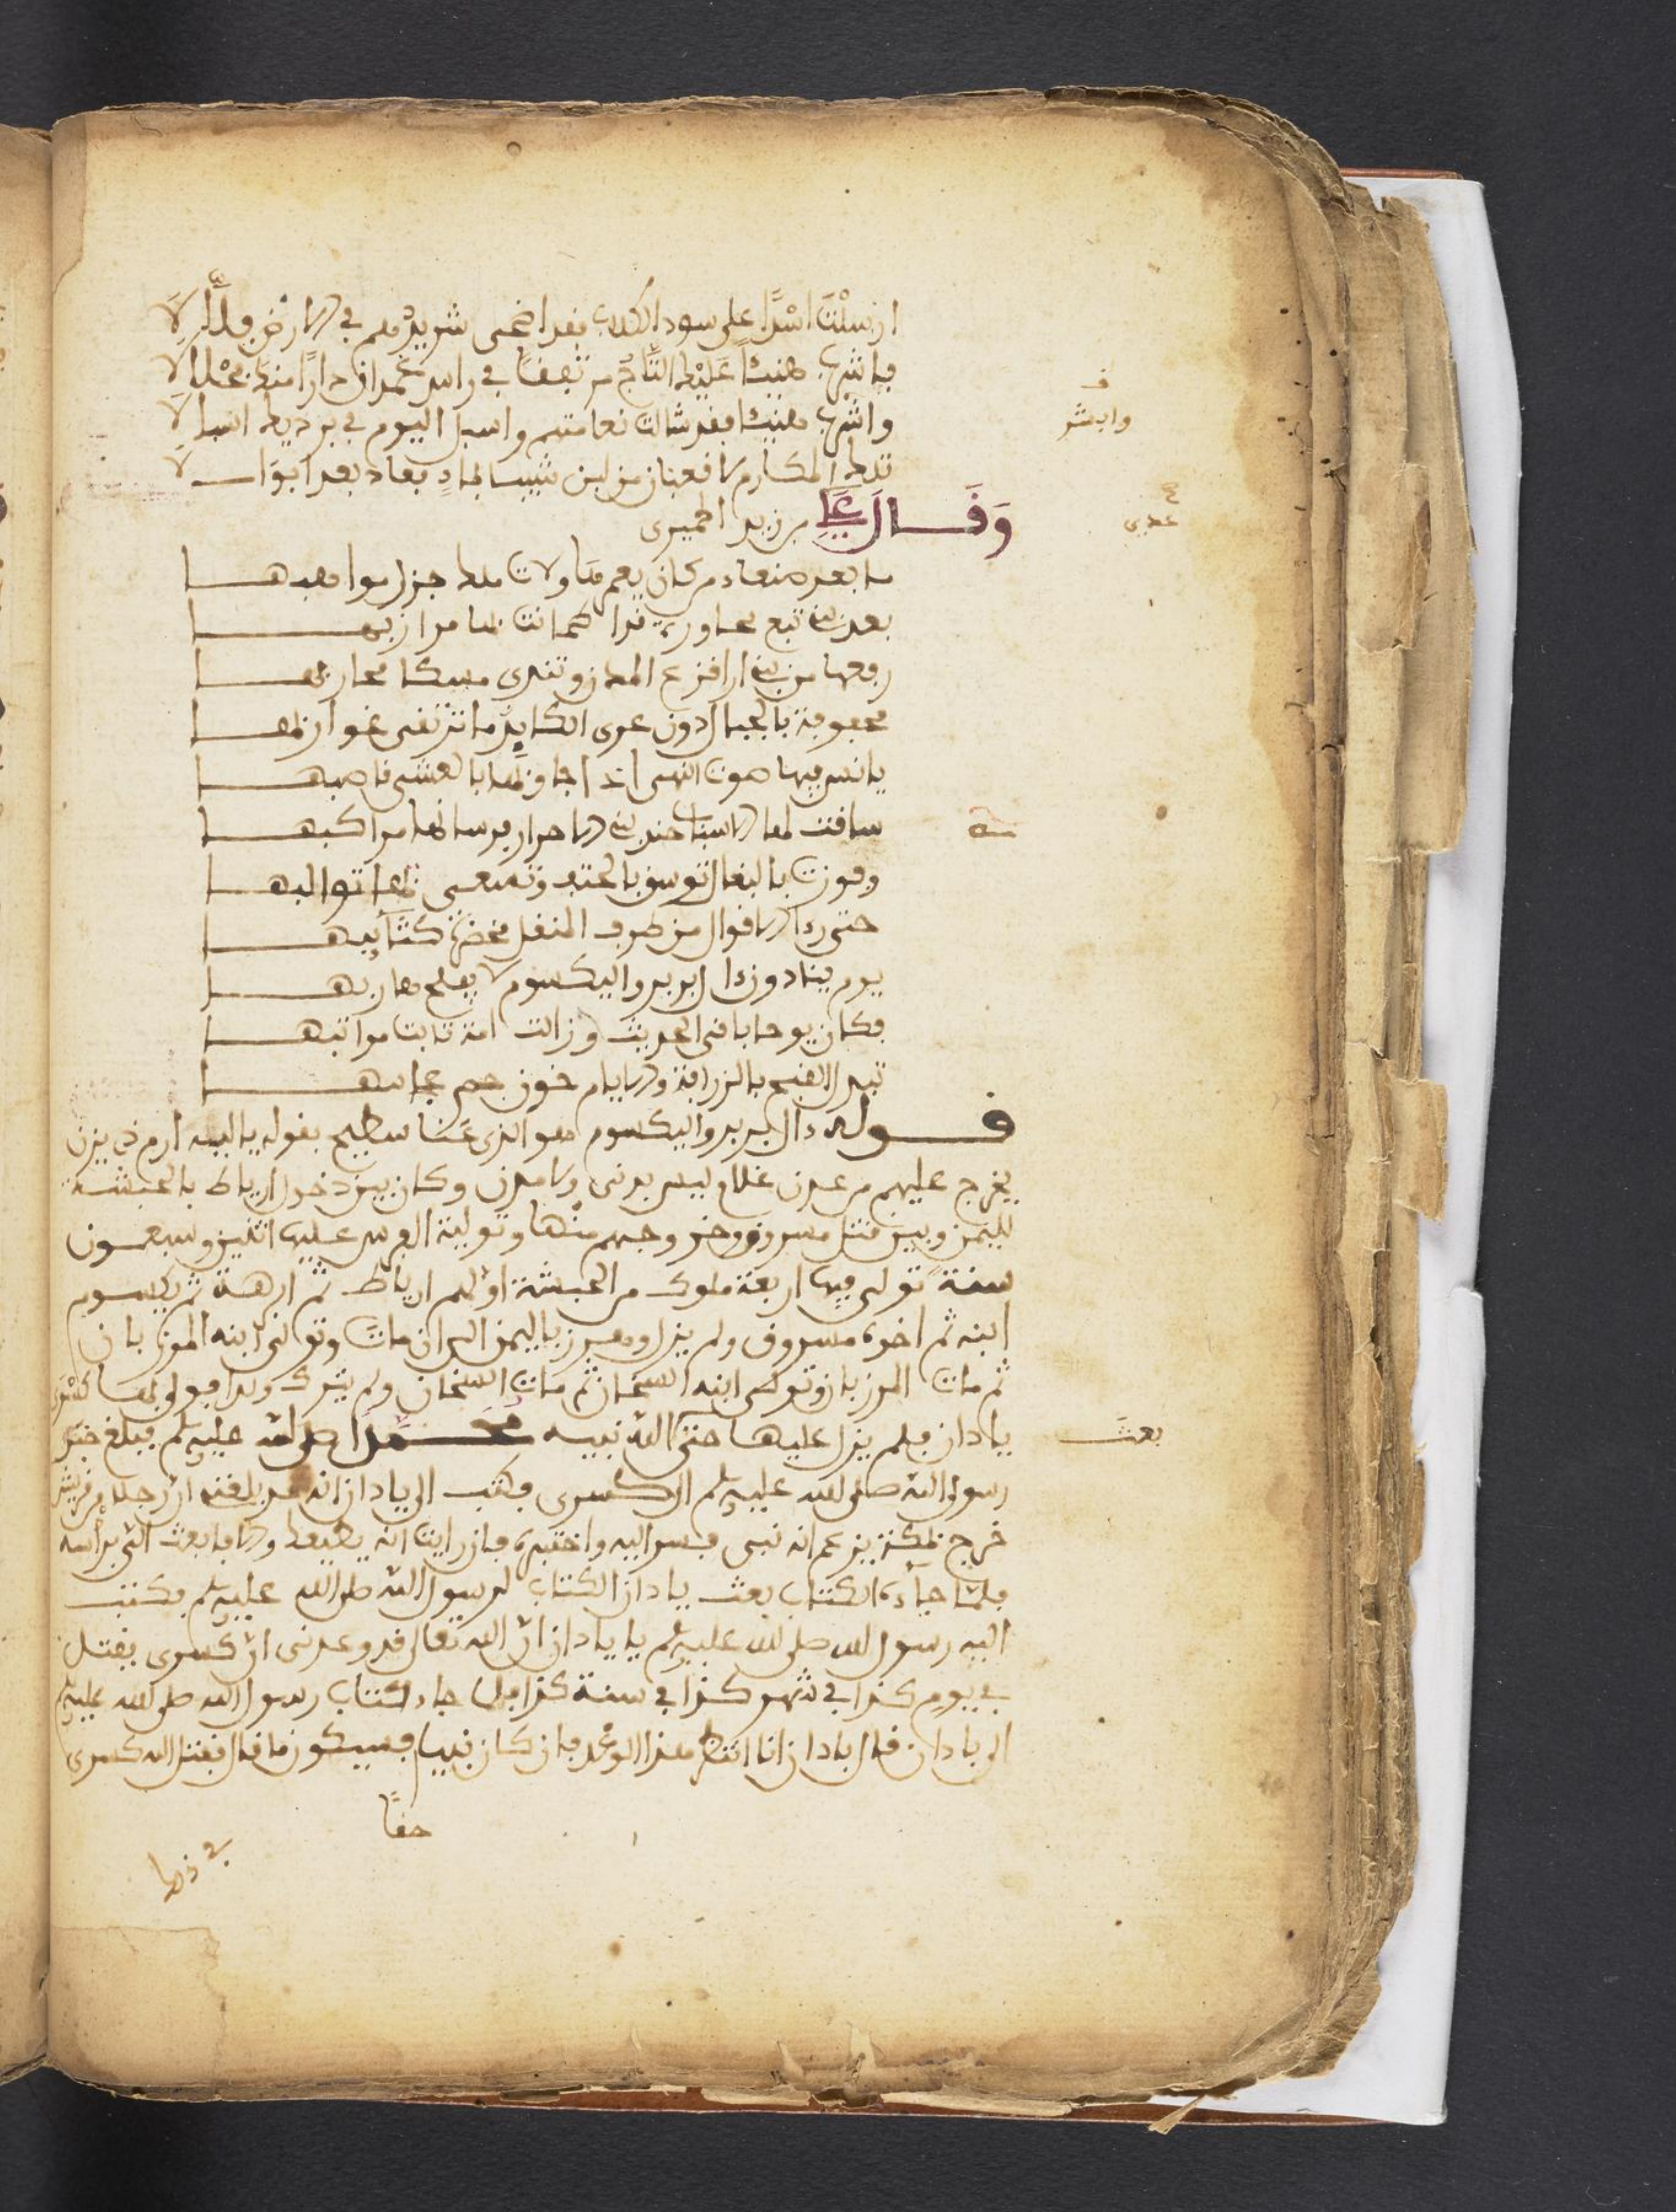 ارسلْتَ اسْدًا على سود الكلاب فقد اضحى شريدُهم في الارض فلّالا
فاشرب هنيئًا عليْك التاجُ مرتفقًا في راس غمدان دارًا منك محْلالا
واشرب هنيئا فقد شالت نعامتهم واسبل اليوم في برديك اسبالا
تلك المكارم لا قعبان من لبن شيبا بماءٍ فعاد بعد ابوالا
وَقَال عدي بن زيد الحميرى
ما بعد صنعاء من كان يعمرها ولاة ملك جزل مواهبها
رفعها من بنى لدا قزع المزن وتندى مسكا محاربها
محفوفة بالجبال دون عرى الكايد ما ترتقى غواربها
يانس فيها صوت النهام اذا جاوبها بالعشى قاصبها
ساقت لها الاسباب جند بنى الاحرار فرسانها مواكبها
وفوزت بالبغال توسق بالحتف وتسعى بها توالبها
حتى رءا الاقوال من طرف المنقل مخضرّة كتائبها
يوم ينادون ءال بربر واليكسوم لا يفلح هاربها
فكان يوما باقى الحديث وزالت امة ثابت مراتبها
تبدل الفيح بالزرافة والايام خون جم عجائبها
قوله ءال بربر واليكسوم هو الذى عَنا سطيح بقوله يليه ارم ذى يزن
يخرج عليهم من عدن غلام ليس بدنى ولا مدن وكان بين دخول ارياط بالحبشة
لليمن وبين قتل مسروق وخروجهم منها وتولية الفرس عليها اثنين وسبعون
سنة تولى فيها اربعة ملوك من الحبشة اولهم ارياط ثم ابرهة ثم يكسوم
ابنه ثم اخوه مسروق ولم يزل وهرز باليمن الى ان مات وتولى ابنه المرزبان
ثم مات المرزبان وتولى ابنه التينجان ثم مات التينجان ولم يترك ولدا فولى بها كسْرى
باذان فلم يزل عليها حتى بعث الله نبيه محمدا صلى الله عليه وسلم فبلغ خبر
رسول الله صلى الله عليه وسلم الى كسرى فكتب الى باذان انه قد بلغنى ان رجلا من قريش
خرج بمكة يزعم انه نبى فسر اليه واختبره فان رايت انه يطيعك والا فابعث الىّ براسه
فلمّا جاءه الكتاب بعث باذان الكتاب لرسول الله صلى الله عليه وسلم فكتب
اليه رسول الله صلى الله عليه وسلم يا باذان ان الله تعالى قد وعدنى ان كسرى يقتل
في يوم كذا في شهر كذا في سنة كذا فلما جاء كتاب رسول الله صلى الله عليه وسلم
الى باذان قال باذان انا انتظر هذا الوعد فان كان نبيا فسيكون ما قال فقتل الله كسرى
حقًا